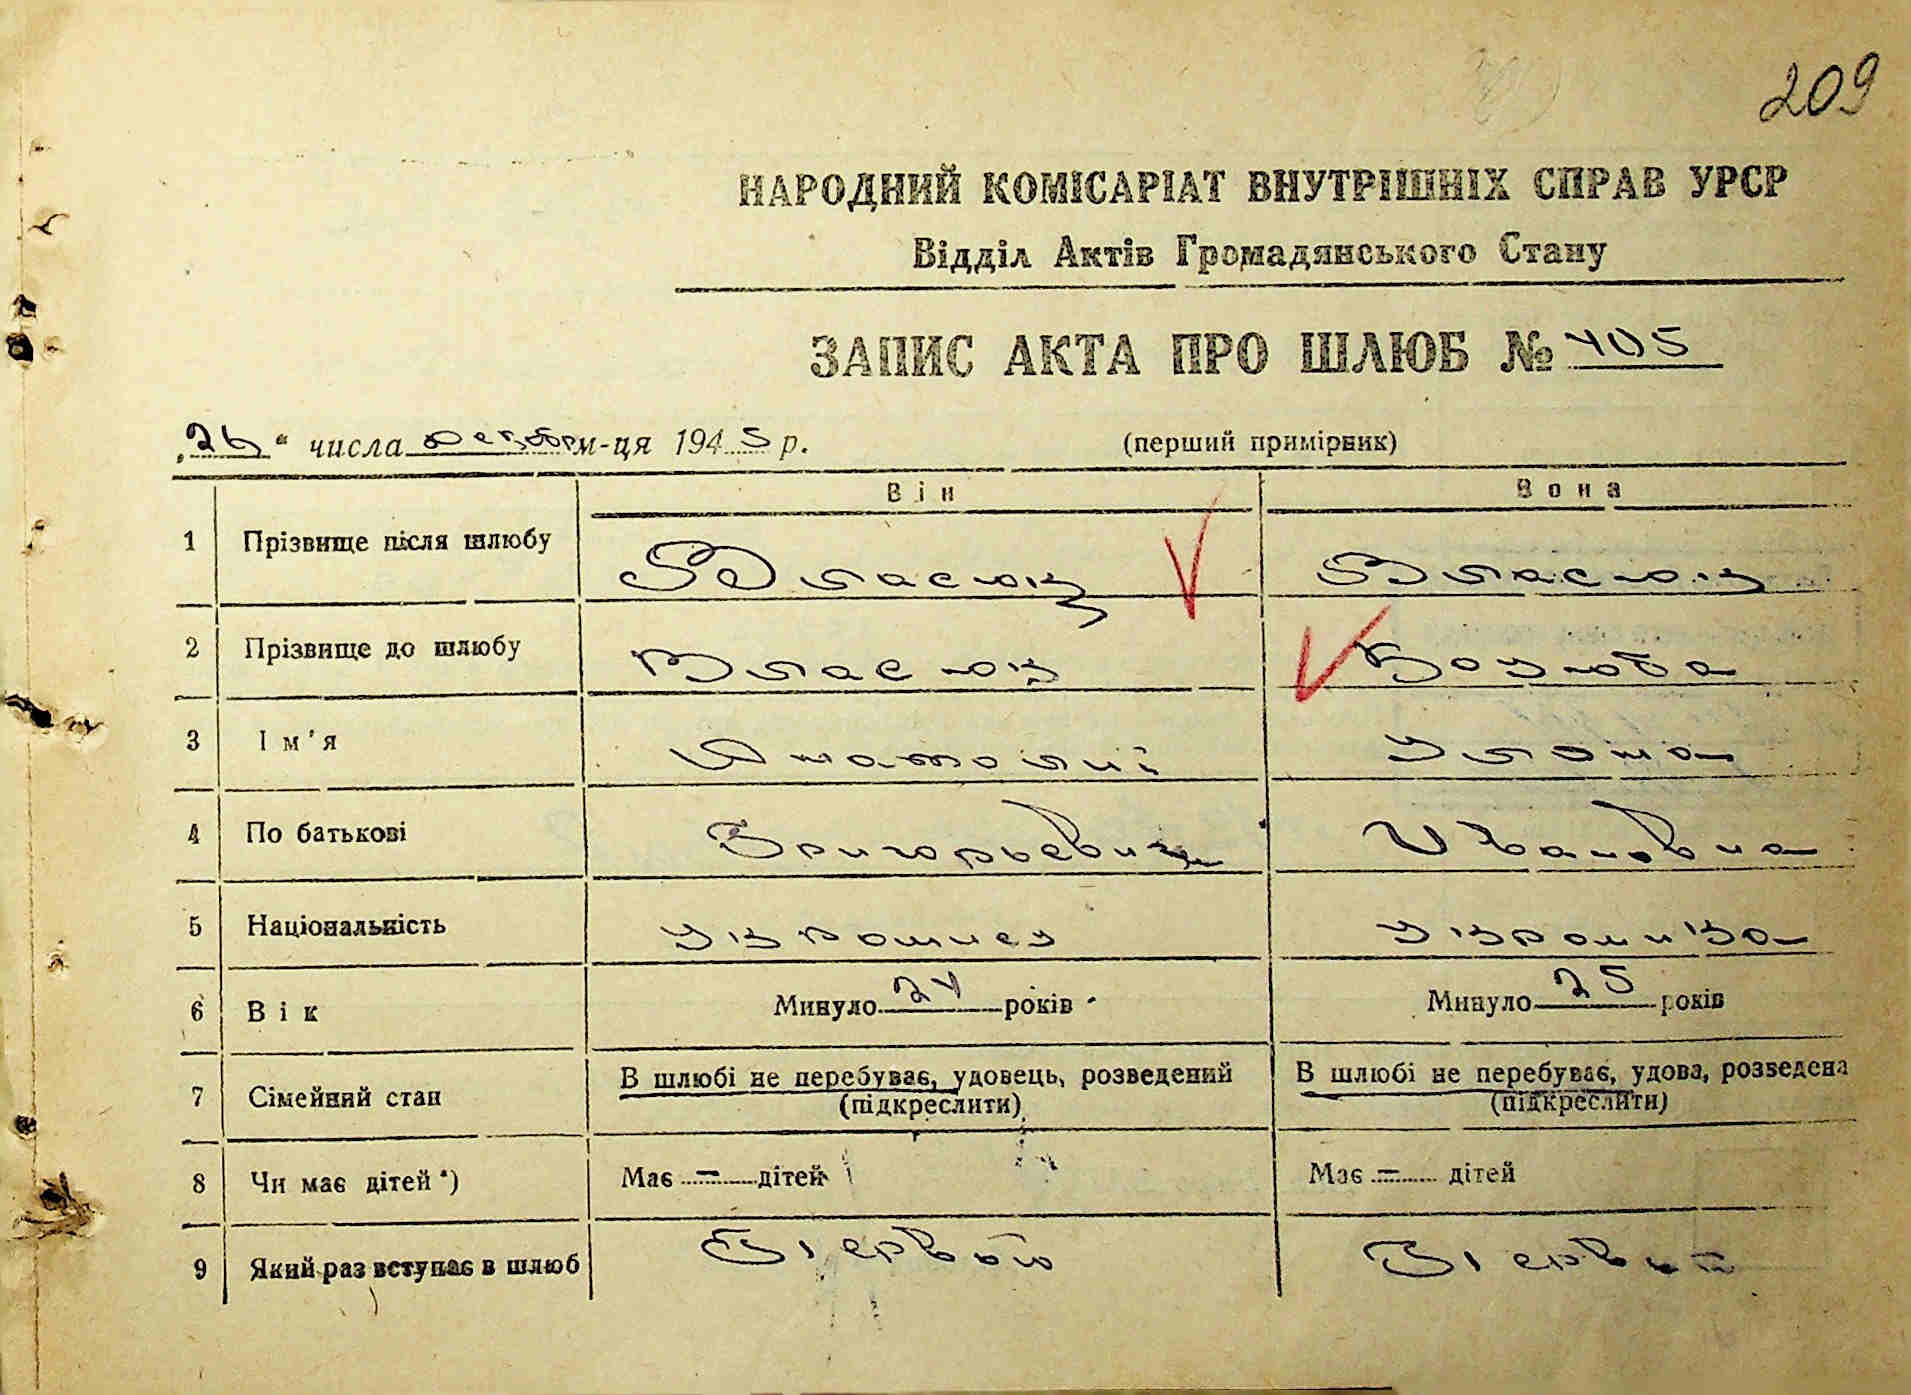 209
НАРОДНИЙ КОМІСАРІАТ ВНУТРІШНІХ СПРАВ УРСР
Відділ Актів Громадянського Стану
ЗАПИС АКТА ПРО ШЛЮБ № 405
„26“ числа декабря м-ця 1945 р. (перший примірник)
Він Вона
1 Прізвище після шлюбу Власюк Власюк
2 Прізвище до шлюбу Власюк
3 Ім'я Анатолий
4 По батькові Григорьевич Ивановна
5 Національність украинец украинка
6 Вік Минуло 24 років Минуло 25 років
7 Сімейний стан В шлюбі не перебуває, удовець, розведений (підкреслити) В шлюбі не перебуває, удова, розведена (підкреслити)
8 Чи має дітей*) Має = дітей Має = дітей
9 Який раз вступає в шлюб Первый Первый